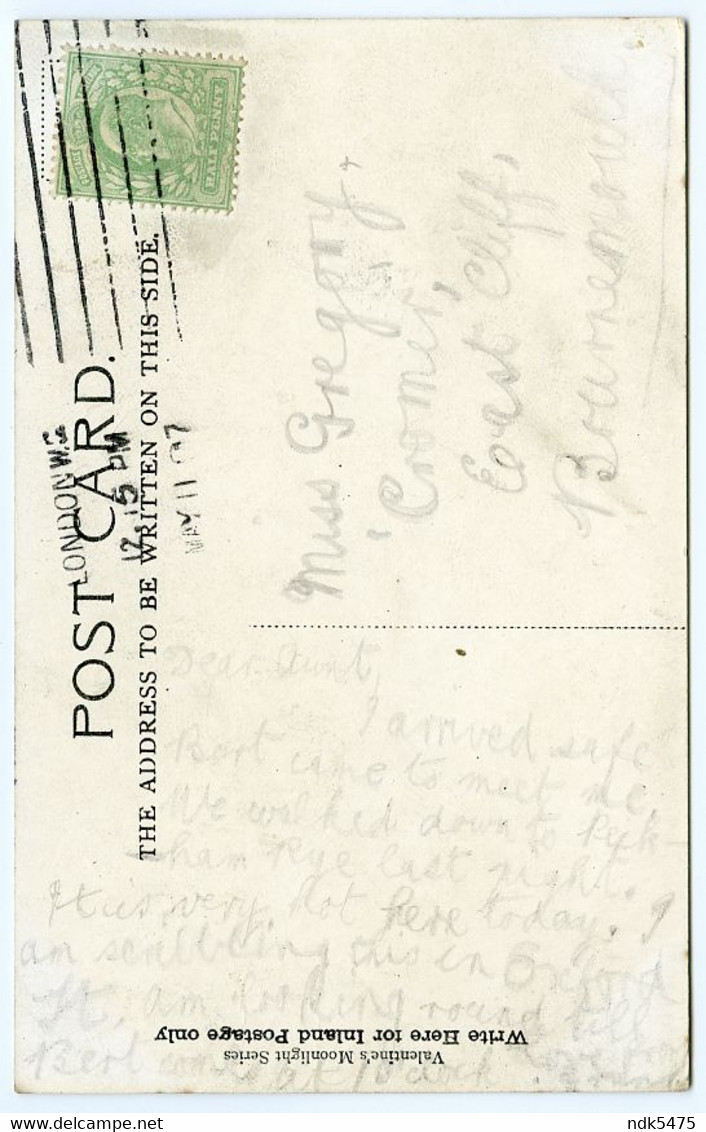 POST CARD.
THE ADDRESS TO BE WRITTEN ON THIS SIDE.
HALF PENNY
LONDON W.
12.15 PM
MAY 11 07
Miss Gregory.
'Cromer,'
East Cliff,
Bournemouth.
Dear Aunt,
I arrived safe
Bert came to meet me.
We walked down to Peck-
ham Rye last night.
It is very hot here today. I
am scribbling this in Oxford
St, am looking round till
Bert comes at o'clock
Love from
Write Here for Inland Postage only
Valentine's Moonlight Series
delcampe.net
ndk5475